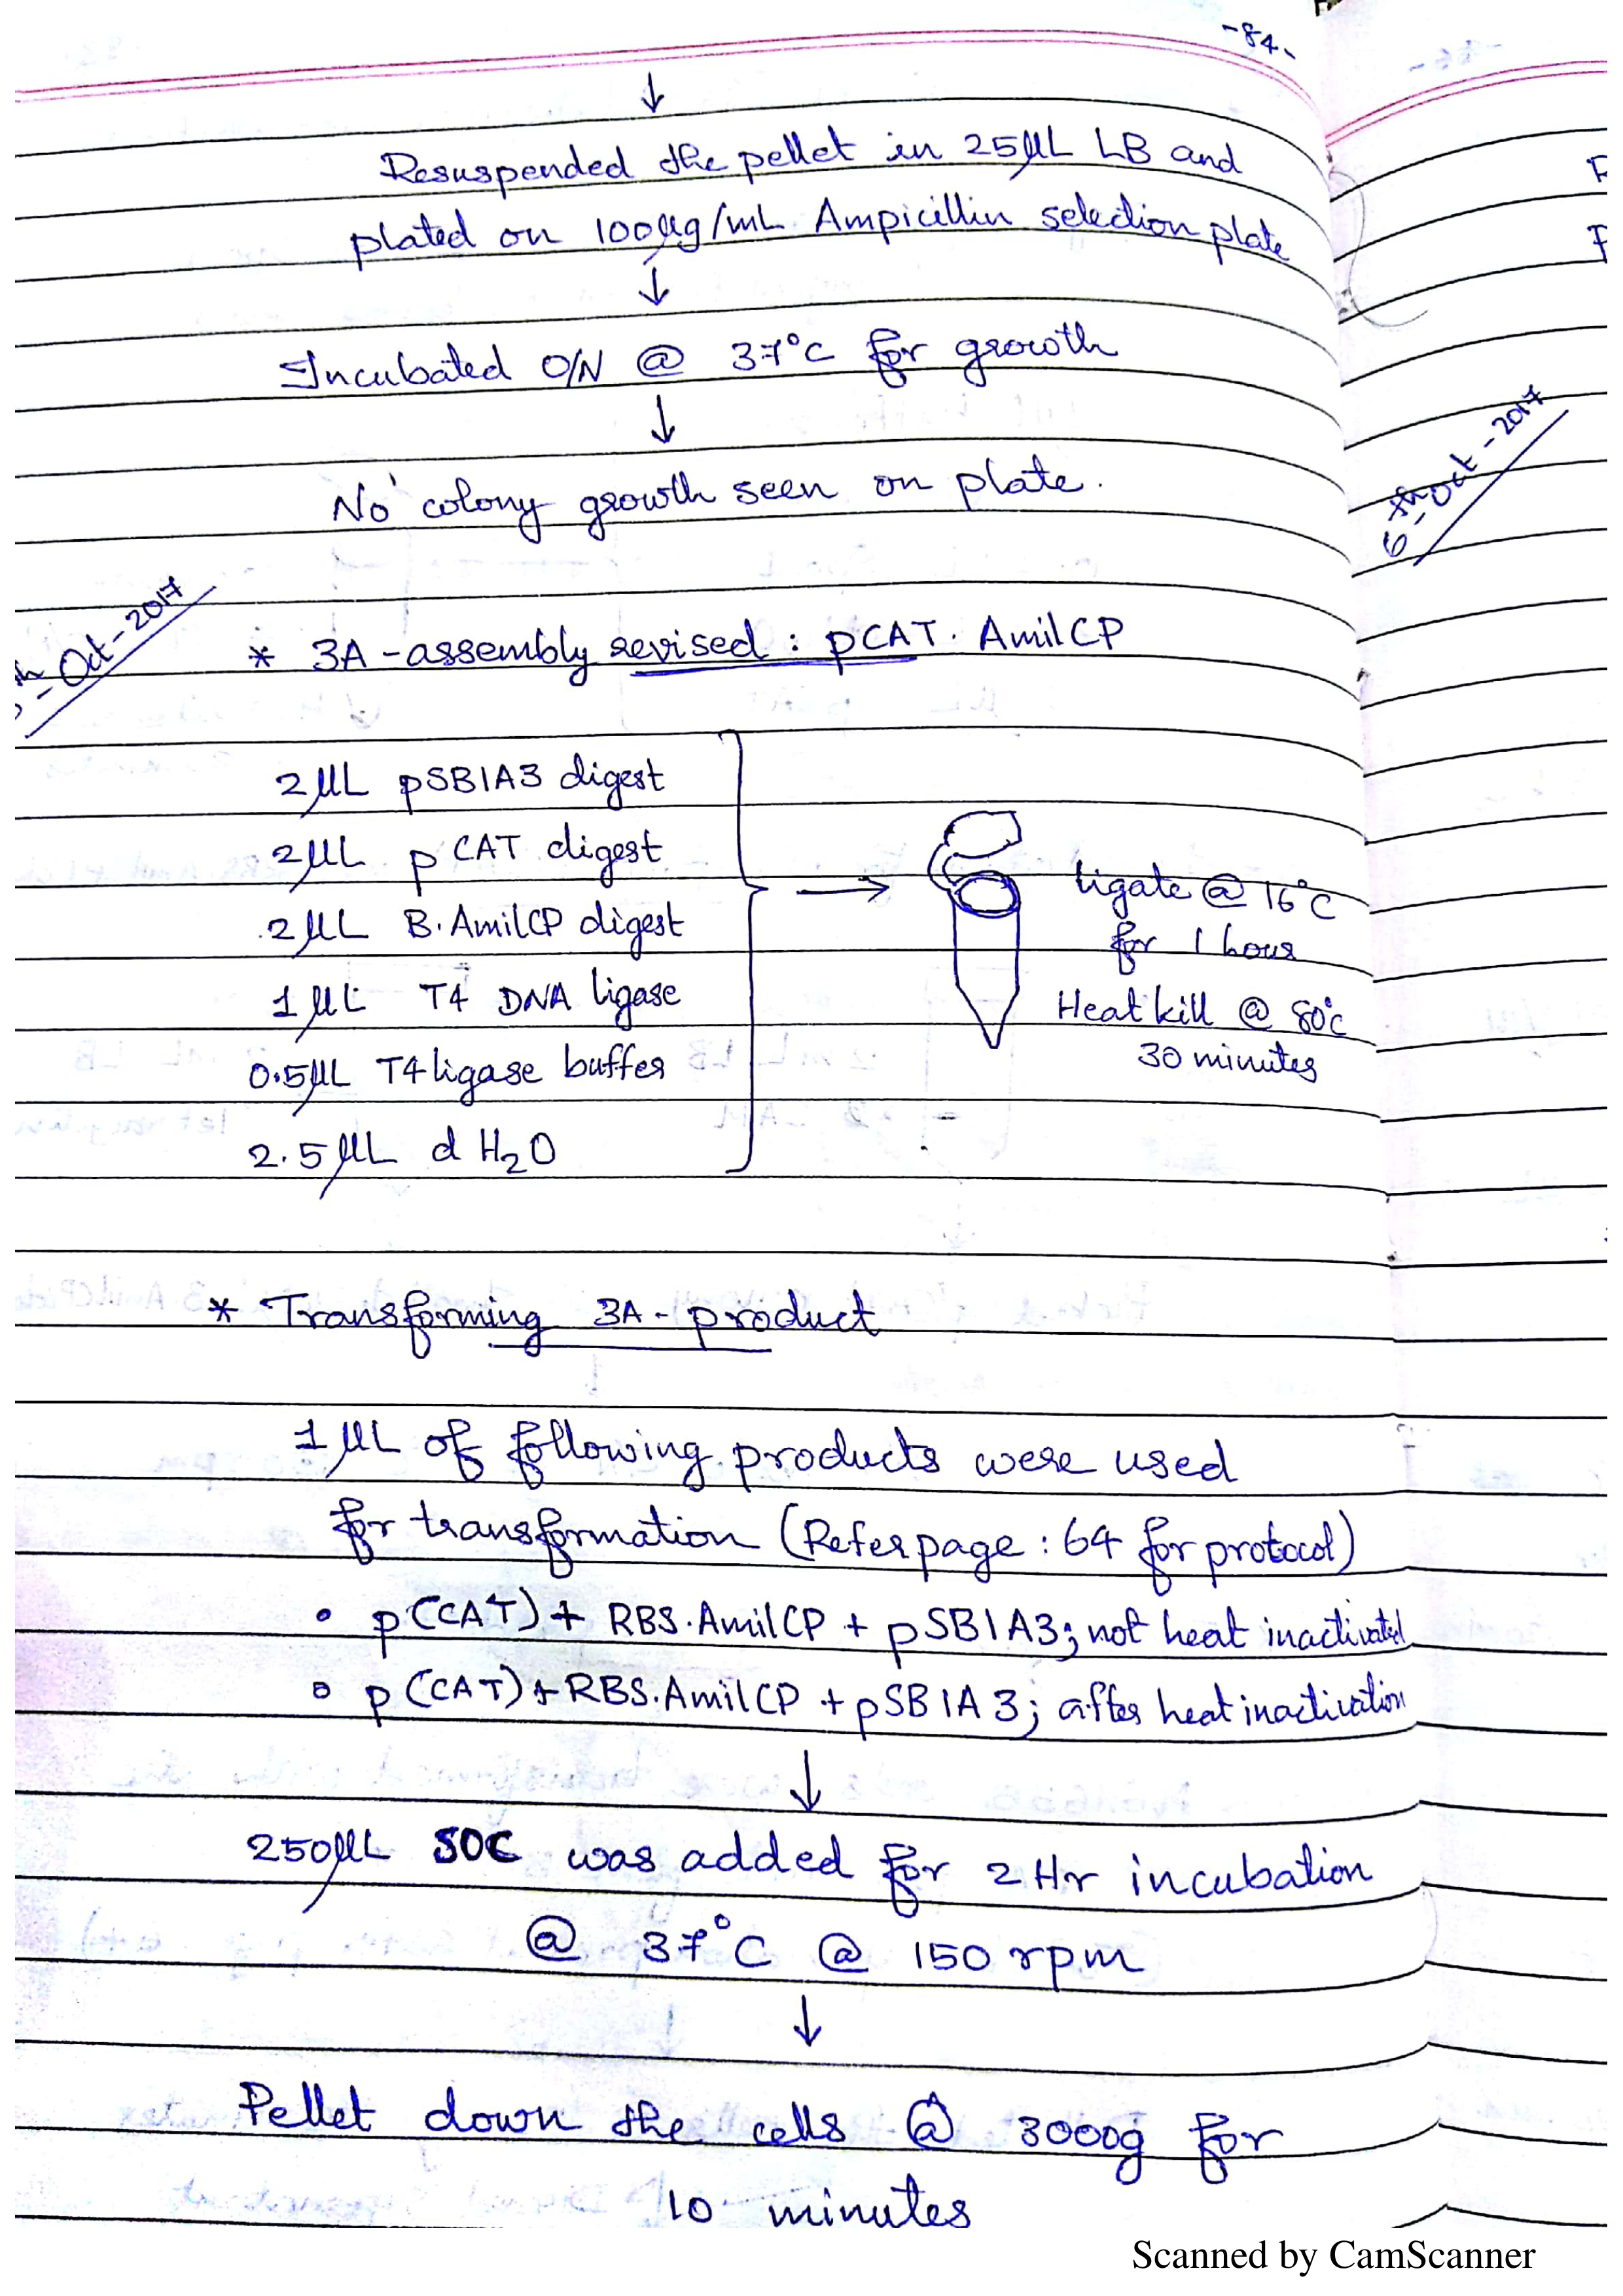 -84-
↓
Resuspended the pellet in 25µL LB and
plated on 100µg/mL Ampicillin selection plate
↓
Incubated O/N @ 37°C for growth
↓
No colony growth seen on plate.
6th-Oct-2017
th-Oct-2017
* 3A-assembly revised : pCAT. AmilCP
2µL pSB1A3 digest
2µL pCAT digest
2µL B.AmilCP digest
1µL T4 DNA ligase
0.5µL T4 ligase buffer
2.5µL dH₂O
→
ligate @ 16°C
for 1 hour
Heat kill @ 80°C
30 minutes
* Transforming 3A-product
1µL of following products were used
for transformation (Refer page : 64 for protocol)
• p(CAT) + RBS.AmilCP + pSB1A3; not heat inactivated
• p(CAT) + RBS.AmilCP + pSB1A3; after heat inactivation
↓
250µL SOC was added for 2 Hr incubation
@ 37°C @ 150 rpm
↓
Pellet down the cells @ 3000g for
10 minutes
Scanned by CamScanner